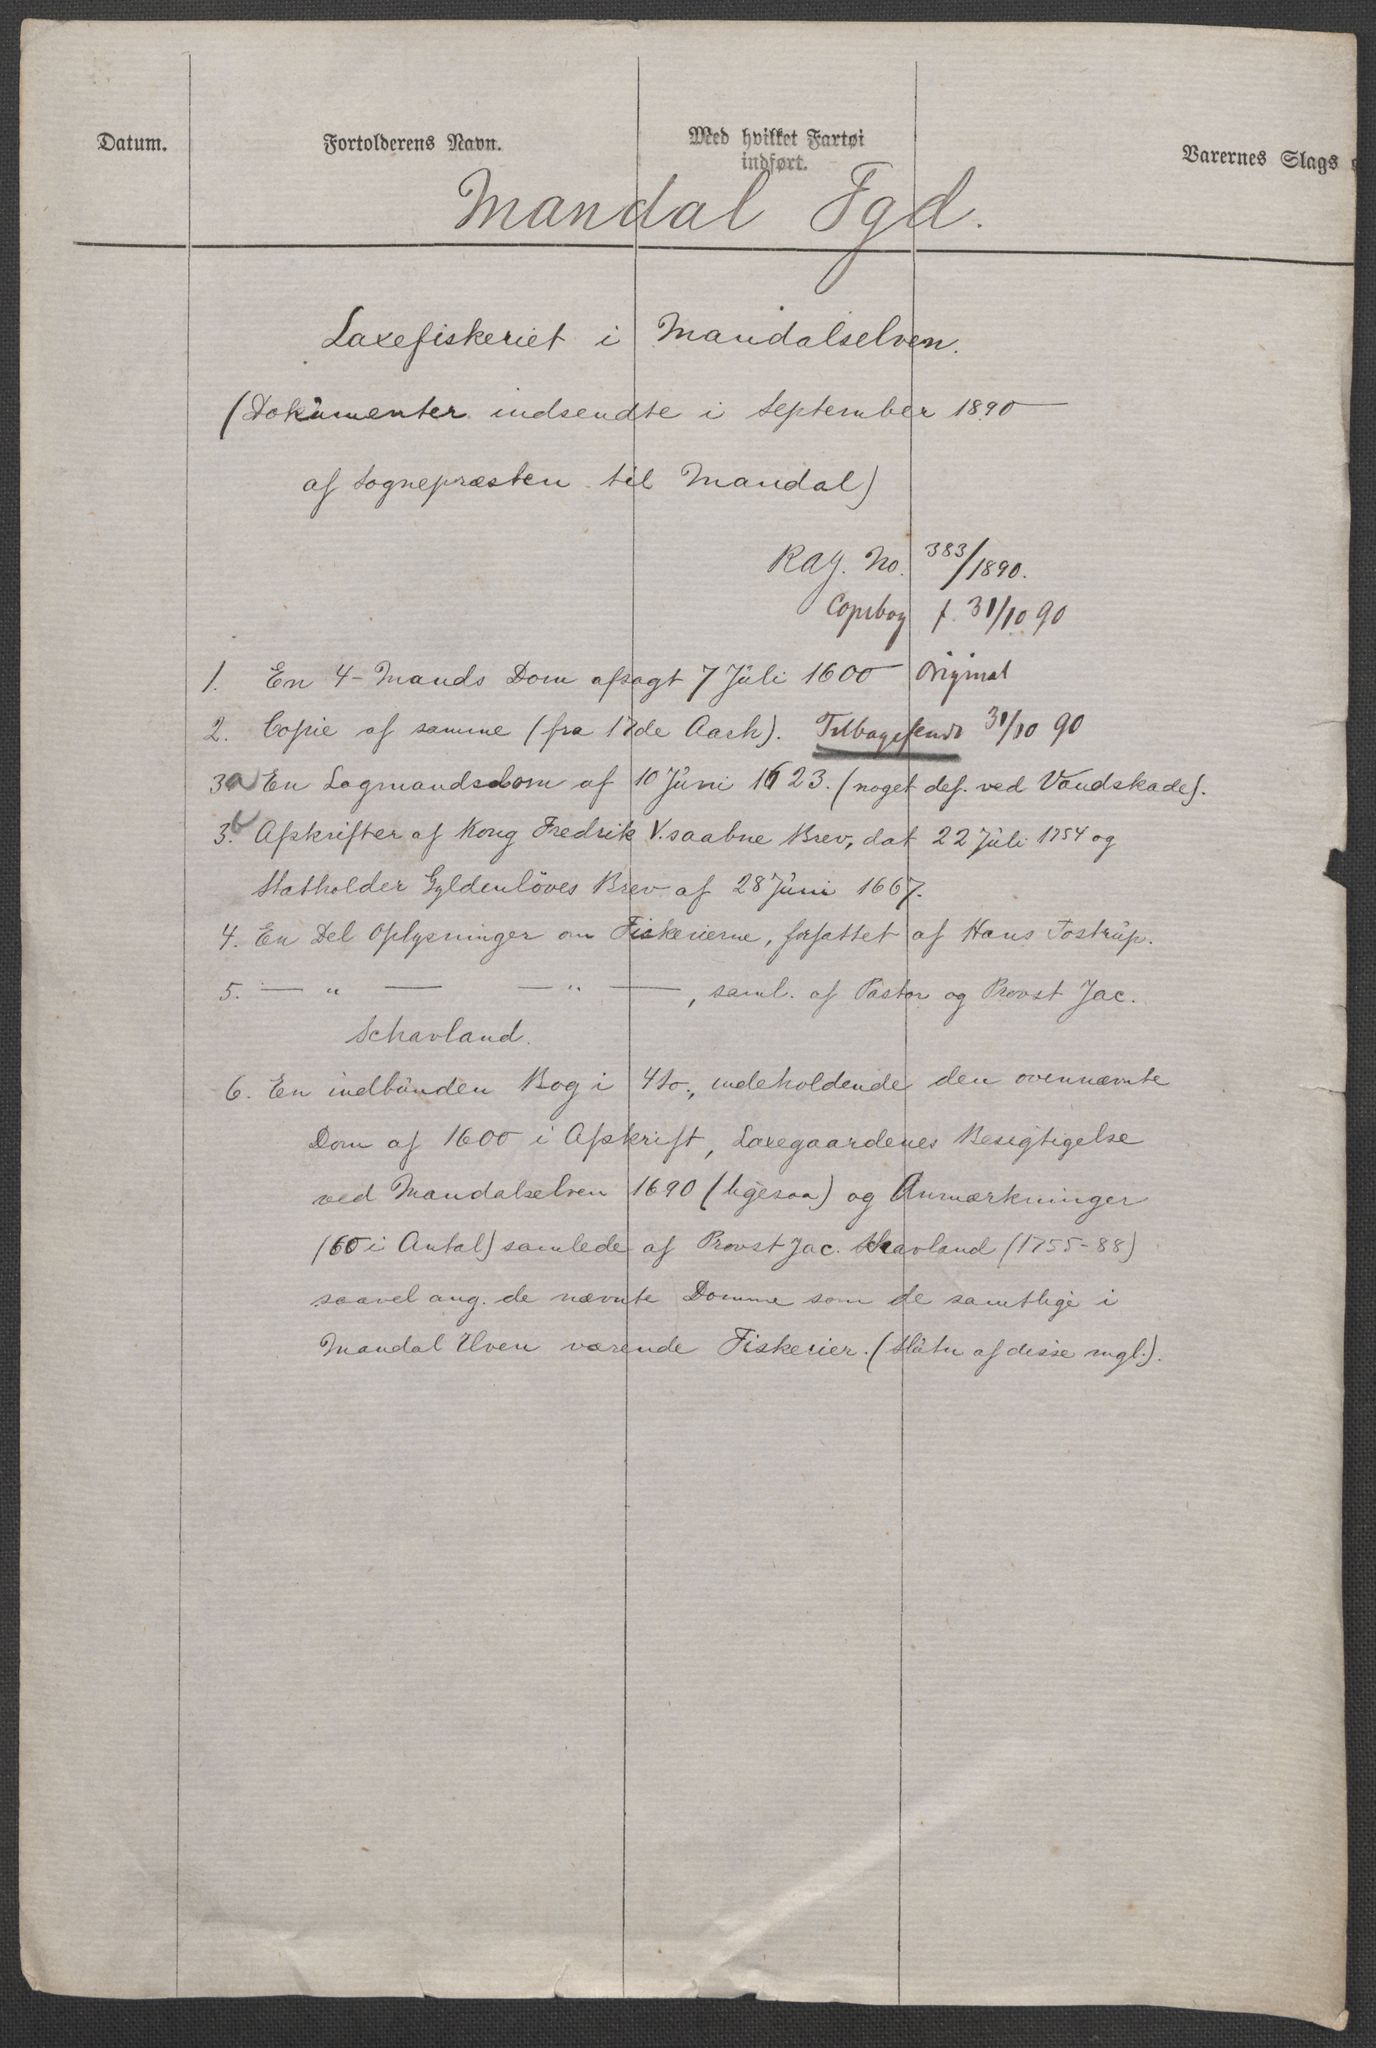 Datum.
Fortolderens Navn.
Med hvilket Fartøi
indført.
Varernes Slags
Mandal Fgd.
Laxefiskeriet i Mandalselven.
(Dokumenter indsendte i September 1890
af Sognepræsten til Mandal)
RAJ. No. 383/1890.
Copibog f. 31/10 90
1. En 4-Mands Dom afsagt 7 Juli 1600 Original
2. Copie af samme (fra 17de Aarh). Tilbagesendt 31/10 90
3a En Lagmandsdom af 10 Juni 1623. (noget def. ved Vandskade).
3b. Afskrifter af Kong Fredrik V. saabne Brev, dat 22 Juli 1754 og
Statholder Gyldenløves Brev af 28 Juni 1667.
4. En Del Oplysninger om Fiskerierne, forfattet af Hans Tostrup.
5. — " — — " —, saml. af Pastor og Provst Jac.
Schavland.
6. En indbunden Bog i 4to., indeholdende den ovennævnte
Dom af 1600 i Afskrift, Laxegaardenes Besigtigelse
ved Mandalselven 1690 (ligesaa) og Anmærkninger
(60 i Antal) samlede af Provst Jac. Schavland (1755-88)
saavel ang. de nævnte Domme som de samtlige i
Mandal Elven værende Fiskerier. (Slutn af disse mgl.).